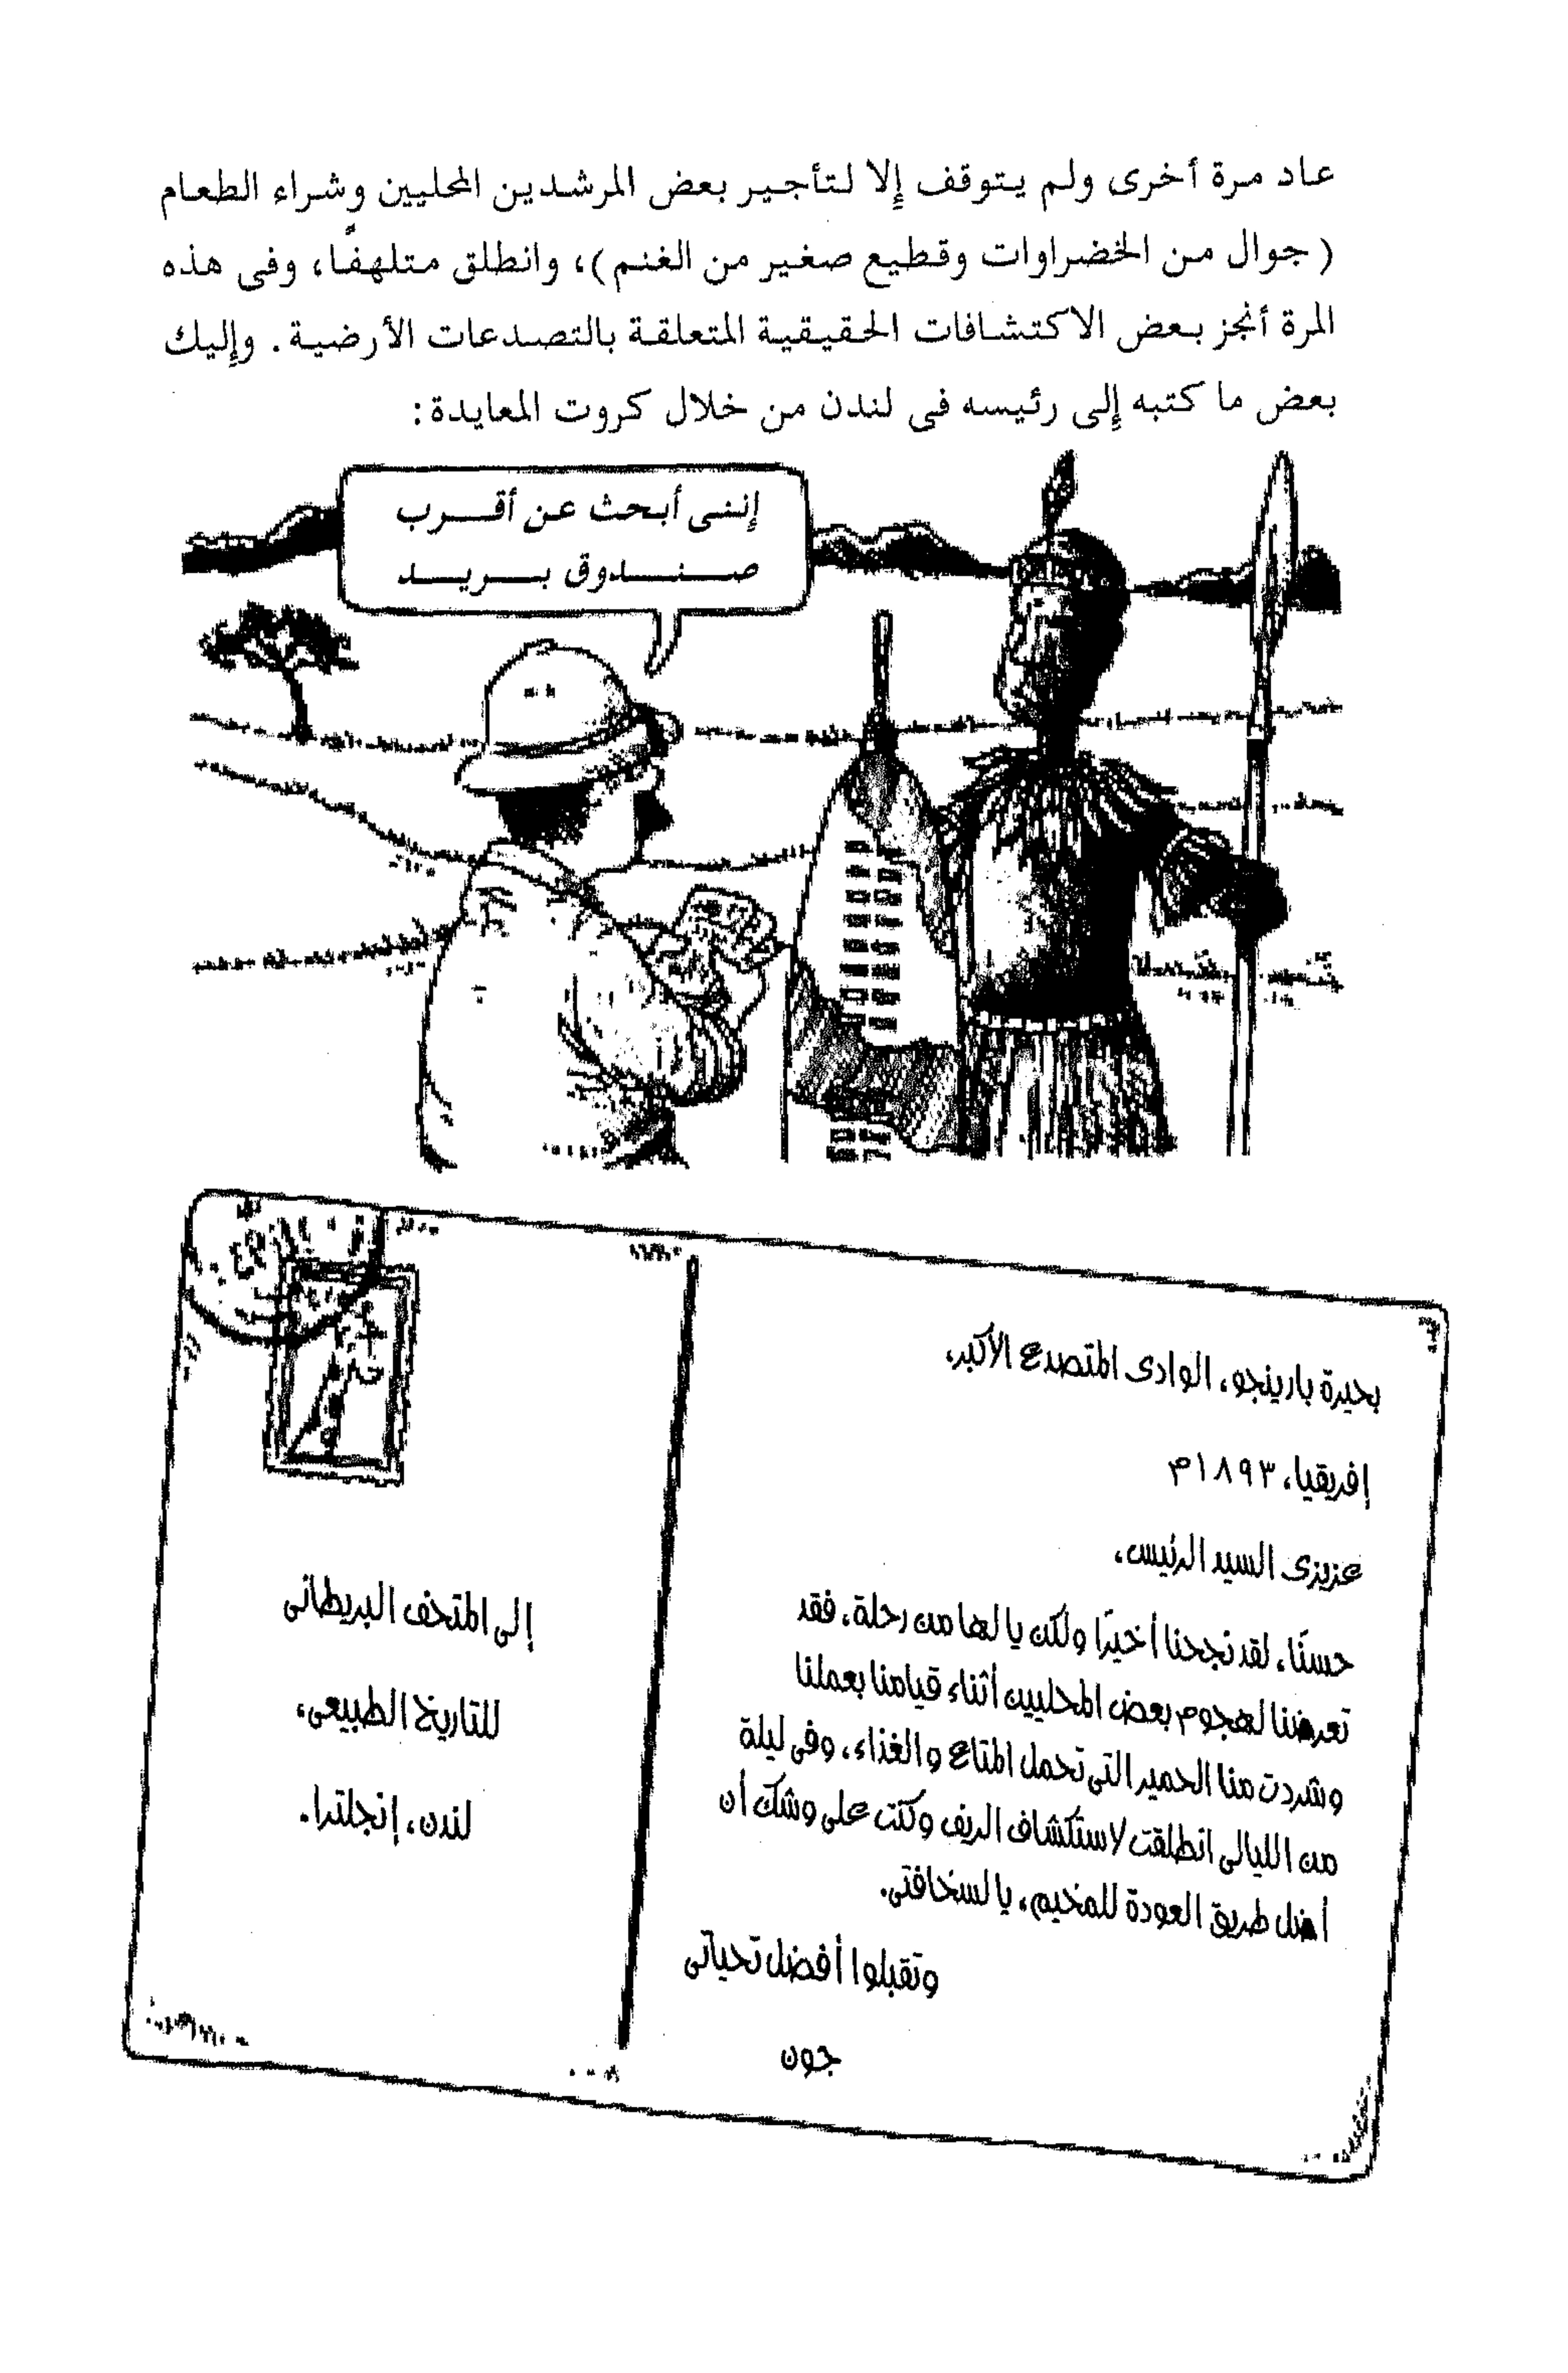 عاد مرة أخرى ولم يتوقف إلا لتأجير بعض المرشدين المحليين وشراء الطعام
(جوال من الخضراوات وقطيع صغير من الغنم)، وانطلق متلهفًا، وفى هذه
المرة أنجز بعض الاكتشافات الحقيقية المتعلقة بالتصدعات الأرضية. وإليك
بعض ما كتبه إلى رئيسه فى لندن من خلال كروت المعايدة:
إننى أبحث عن أقرب
صندوق بريد
بحيرة بارينجو، الوادى المتصدع الأكبر،
إفريقيا، ١٨٩٣م
عزيزى السيد الرئيس،
حسنًا، لقد نجحنا أخيرًا ولكن يا لها من رحلة، فقد
تعرضنا لهجوم بعض المحليين أثناء قيامنا بعملنا
وشردت منا الحمير التى تحمل المتاع والغذاء، وفى ليلة
من الليالى انطلقت لاستكشاف الريف وكنت على وشك أن
أضل طريق العودة للمخيم، يا لسخافتى.
وتقبلوا أفضل تحياتى
جون
إلى المتحف البريطانى
للتاريخ الطبيعى،
لندن، إنجلترا.